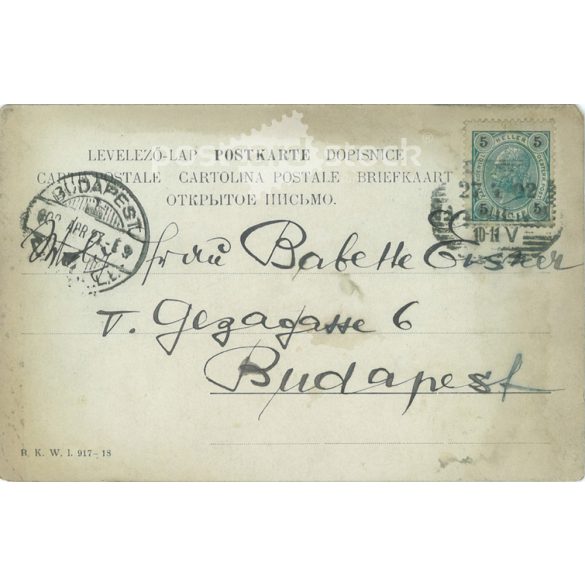 LEVELEZŐ-LAP POSTKARTE DOPISNICE
CARTE POSTALE CARTOLINA POSTALE BRIEFKAART
ОТКРЫТОЕ ПИСЬМО.
5 HELLER 5
5 5
10-11 V
BUDAPEST
902 APR 27
Frau Babette Eisner
V. Gezagasse 6
Budapest
B. K. W. I. 917-18